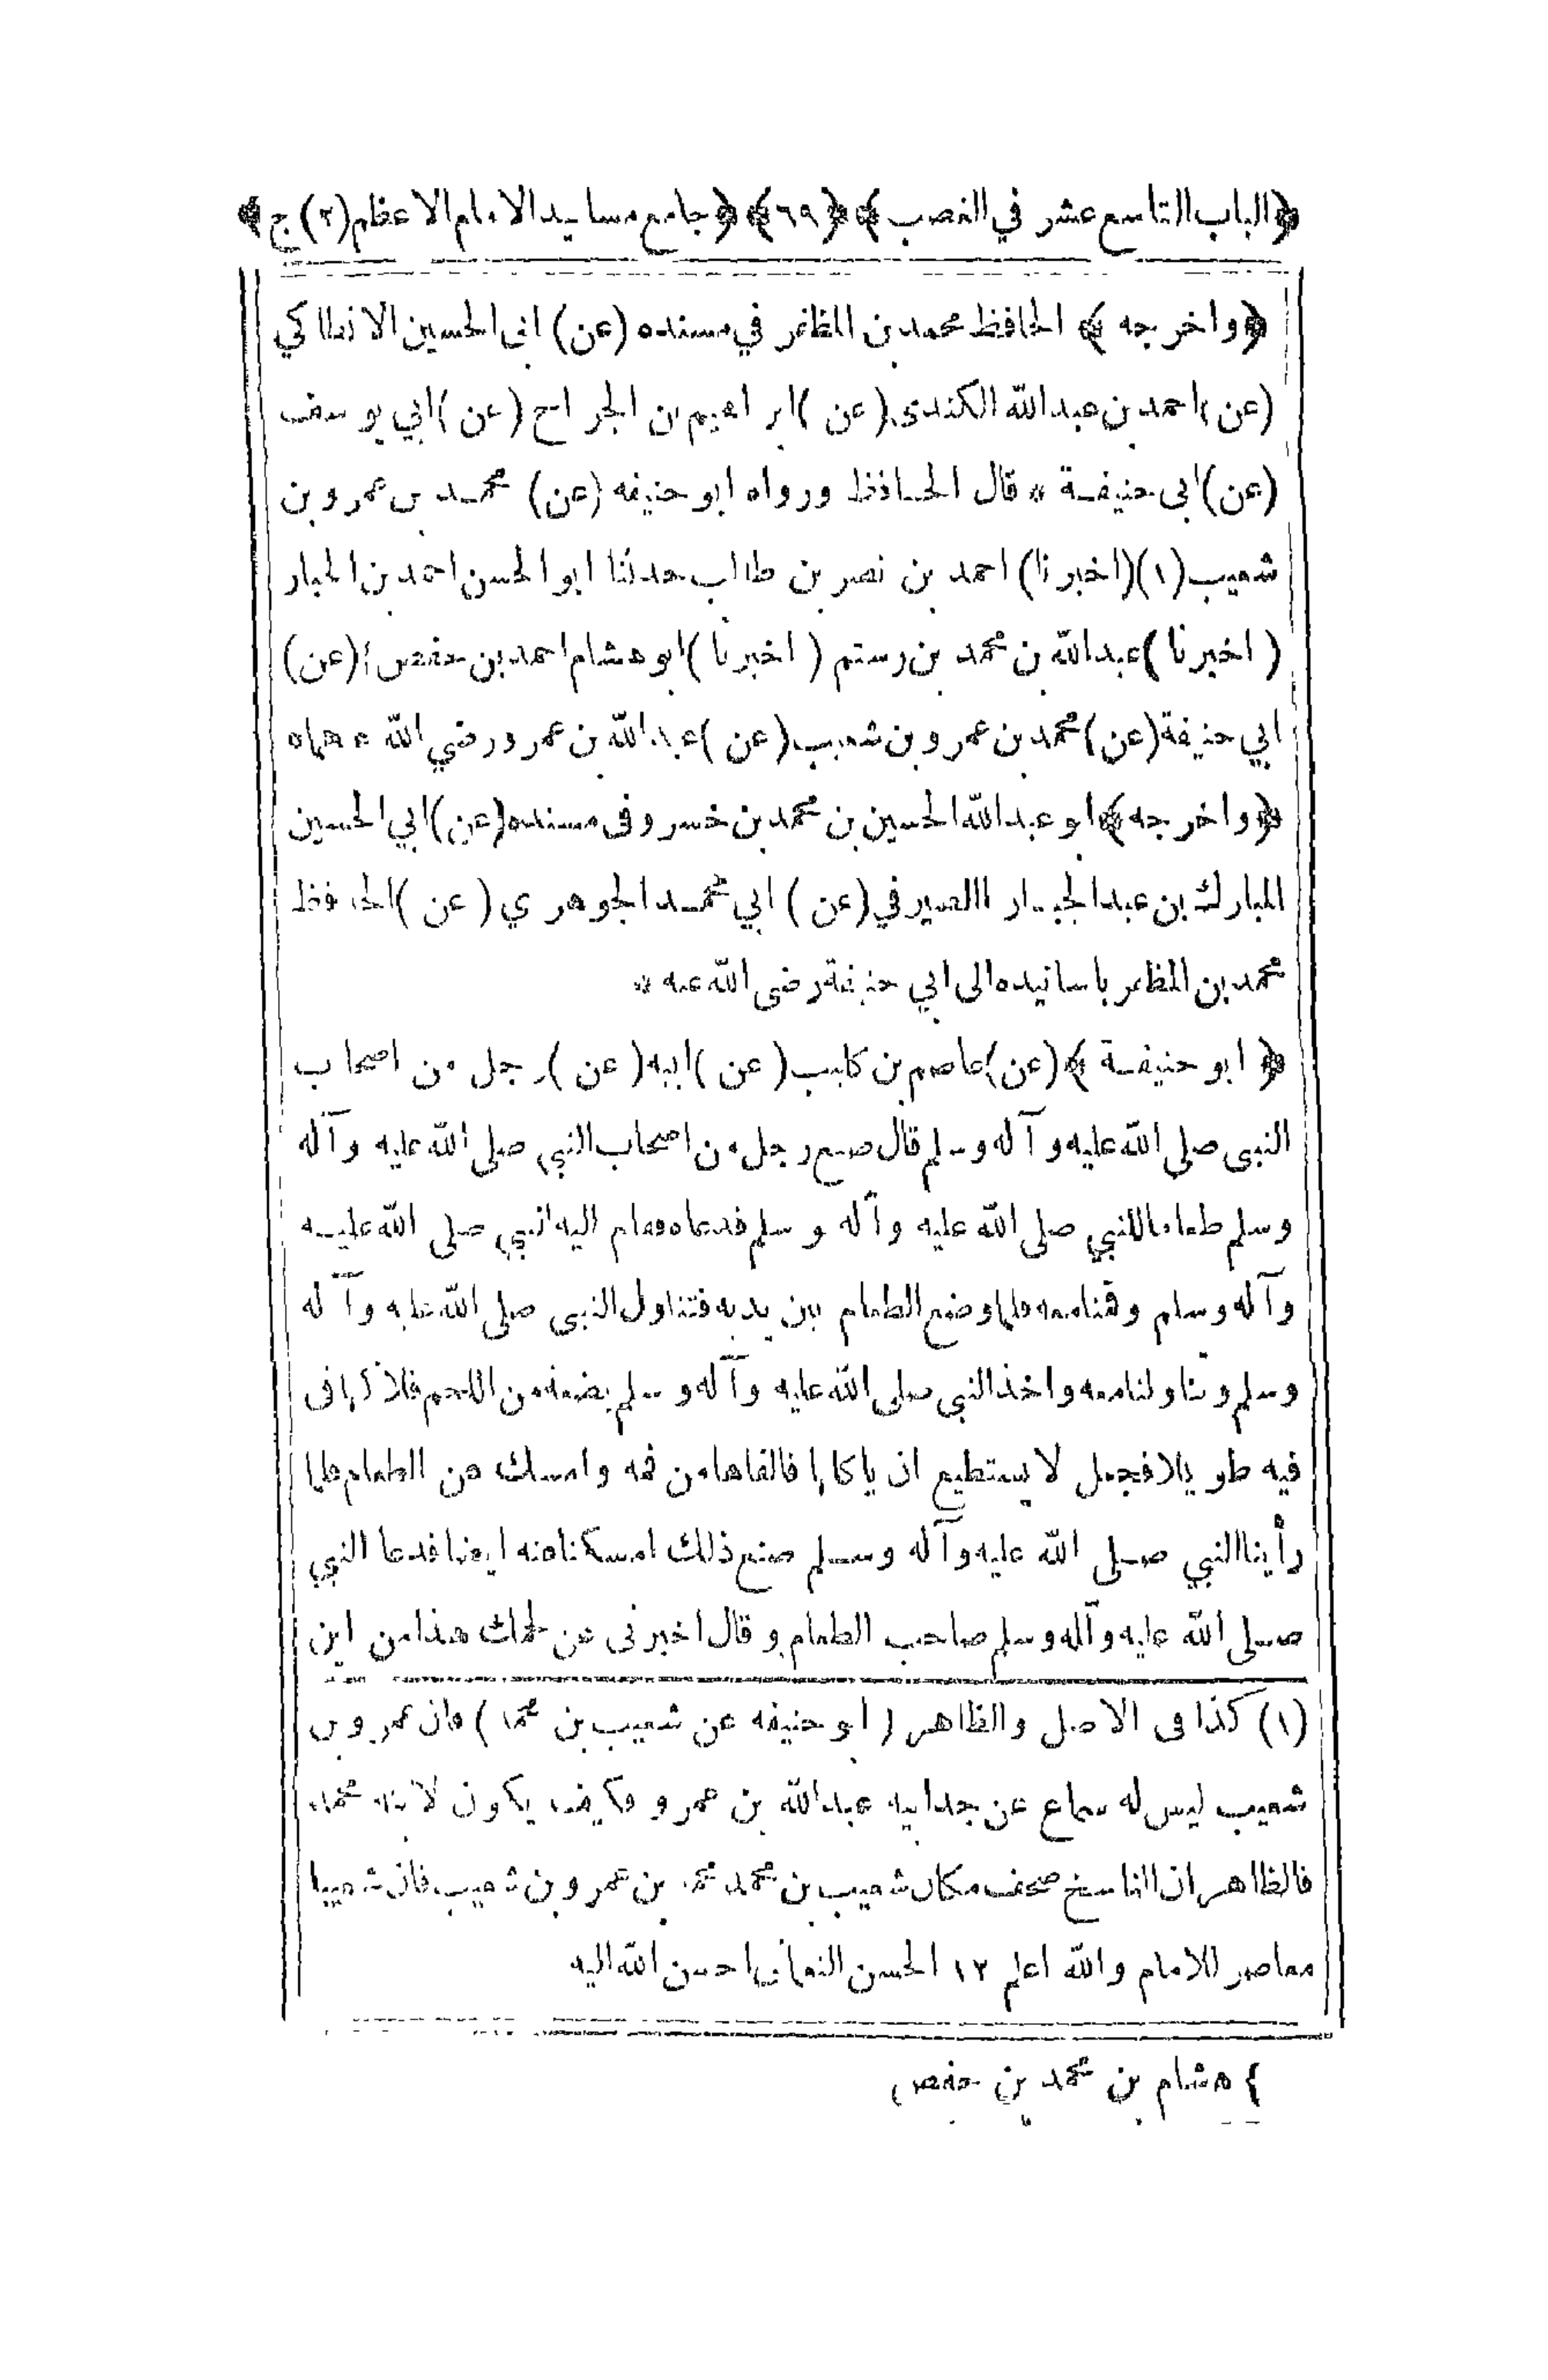 ﴿الباب التاسع عشر في الغصب﴾ ﴿٦٩﴾ ﴿جامع مسانيد الامام الاعظم (٢) ج﴾
﴿واخرجه﴾ الحافظ محمد بن المظفر في مسنده (عن) ابى الحسين الانطاكي
(عن) احمد بن عبدالله الكندى (عن) ابراهيم بن الجراح (عن) ابي يوسف
(عن) ابى حنيفة * قال الحافظ ورواه ابو حنيفه (عن) محمد بن عمرو بن
شعيب (١) (اخبرنا) احمد بن نصر بن طالب حدثنا ابو الحسن احمد بن الحبار
(اخبرنا) عبدالله بن محمد بن رستم (اخبرنا) ابو هشام احمد بن حفص ؛ (عن)
ابي حنيفة (عن) محمد بن عمرو بن شعيب (عن) عبدالله بن عمرو رضي الله عنهما ه
﴿واخرجه﴾ ابو عبدالله الحسين بن محمد بن خسرو فى مسنده (عن) ابي الحسين
المبارك بن عبدالجبار الصيرفي (عن) ابي محمد الجوهري (عن) الحافظ
محمد بن المظفر باسانيده الى ابي حنيفة رضى الله عنه *
﴿ابو حنيفة﴾ (عن) عاصم بن كليب (عن) ابيه (عن) رجل من اصحاب
النبى صلى الله عليه وآله وسلم قال صنع رجل من اصحاب النبي صلى الله عليه وآله
وسلم طعاما للنبي صلى الله عليه وآله وسلم فدعاه فقام اليه النبي صلى الله عليه
وآله وسلم وقمنا معه فلما وضع الطعام بين يديه فتناول النبى صلى الله عليه وآله
وسلم وتناولنا معه واخذ النبى صلى الله عليه وآله وسلم بضعه من اللحم فلاكها فى
فيه طويلا فجعل لا يستطيع ان ياكلها فالقاها من فمه وامسك عن الطعام فلما
رأينا النبي صلى الله عليه وآله وسلم صنع ذلك امسكنا عنه ايضا فدعا النبي
صلى الله عليه وآله وسلم صاحب الطعام وقال اخبرنى عن لحمك هذا من اين
(١) كذا فى الاصل والظاهر (ابو حنيفه عن شعيب بن محمد) فان عمرو بن
شعيب ليس له سماع عن جد ابيه عبدالله بن عمرو فكيف يكون لابنه محمد
فالظاهر ان الناسخ صحف مكان شعيب بن محمد محمد بن عمرو بن شعيب فان شعيبا
معاصر للامام والله اعلم ١٢ الحسن النعمانى احسن الله اليه
} هشام بن محمد بن حفص